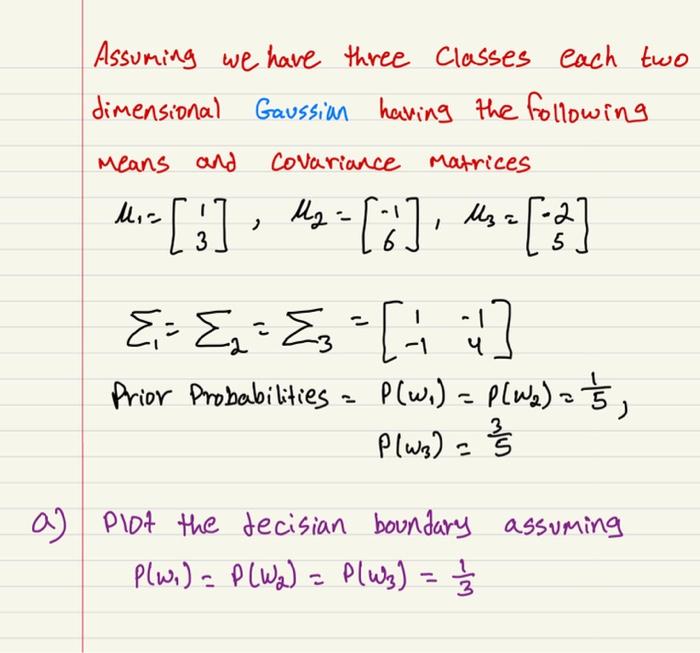 Assuming we have three Classes each two
dimensional Gaussian having the following
means and Covariance Matrices
μ₁ = [1 3], μ₂ = [-1 6], μ₃ = [-2 5]
Σ₁ = Σ₂ = Σ₃ = [1 -1 -1 4]
Prior Probabilities = P(w₁) = P(w₂) = 1/5,
P(w₃) = 3/5
a) Plot the decisian boundary assuming
P(w₁) = P(w₂) = P(w₃) = 1/3